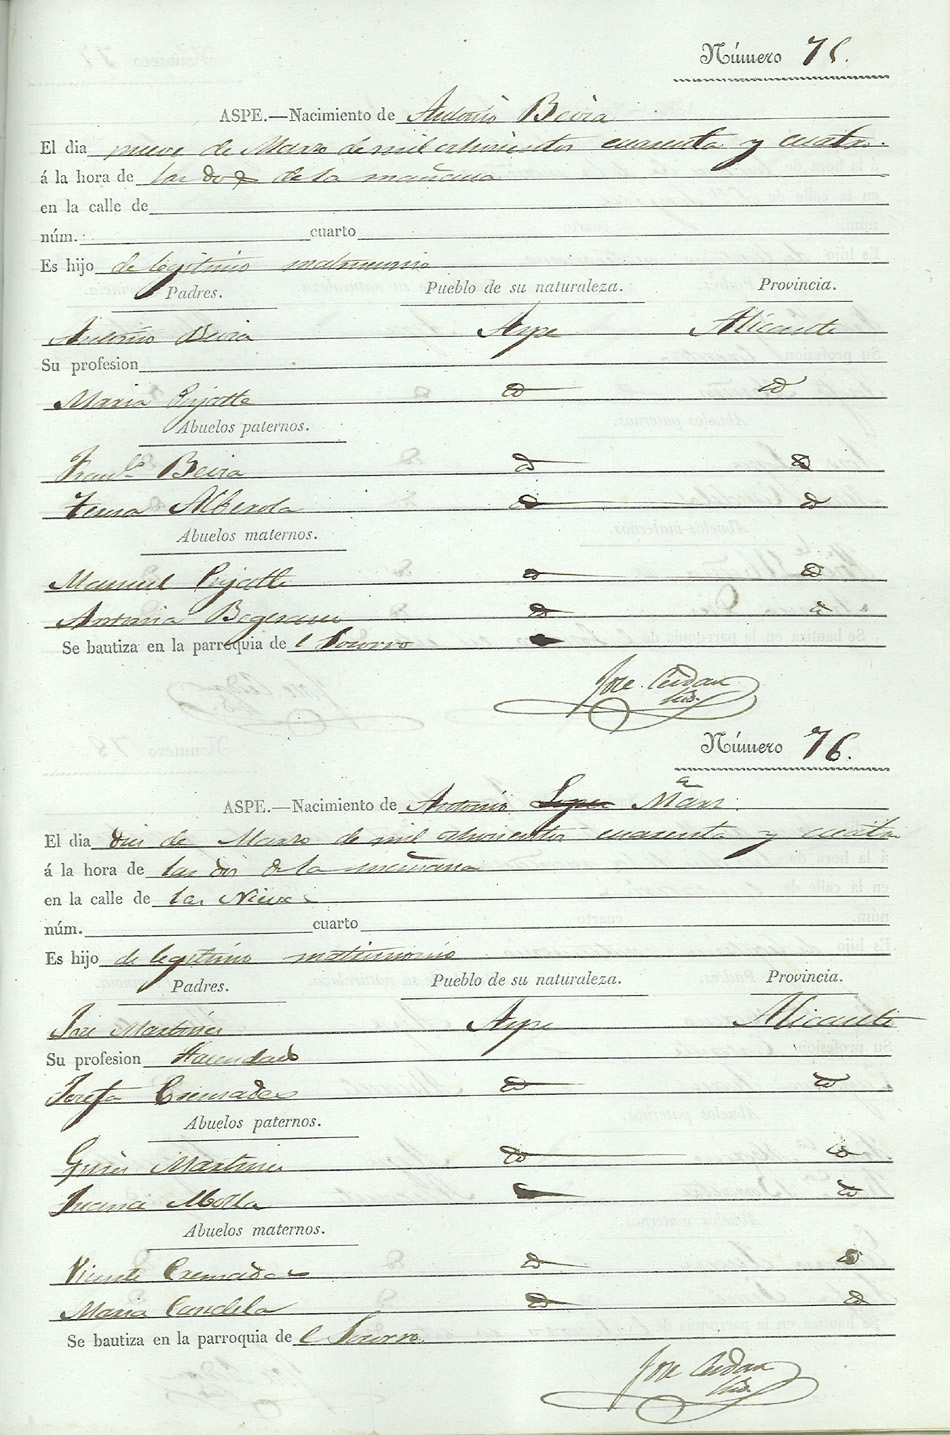 Número 75.
ASPE.—Nacimiento de Antonio Beira
El dia nueve de Marzo de mil ochocientos cuarenta y cuatro.
á la hora de las dos de la mañana
en la calle de
núm. cuarto
Es hijo de legitimo matrimonio
Padres. Pueblo de su naturaleza. Provincia.
Antonio Beira Aspe Alicante
Su profesion
Maria Pujalte id id
Abuelos paternos.
Franco. Beira id id
Alberola id id
Abuelos maternos.
Manuel Pujalte id id
Antonia id id
Se bautiza en la parroquia de l Socorro
Jose Cerdan
Número 76.
ASPE.—Nacimiento de Antonio Lopez Marz
El dia diez de Marzo de mil ochocientos cuarenta y cuatro
á la hora de las dos de la mañana
en la calle de las Nieves
núm. cuarto
Es hijo de legitimo matrimonio
Padres. Pueblo de su naturaleza. Provincia.
Jose Martinez Aspe Alicante
Su profesion Hacendado
Josefa Cremades id id
Abuelos paternos.
Gines Martinez id id
Juana Molla id id
Abuelos maternos.
Vicente Cremades id id
Maria Candela id id
Se bautiza en la parroquia de l Socorro.
Jose Cerdan